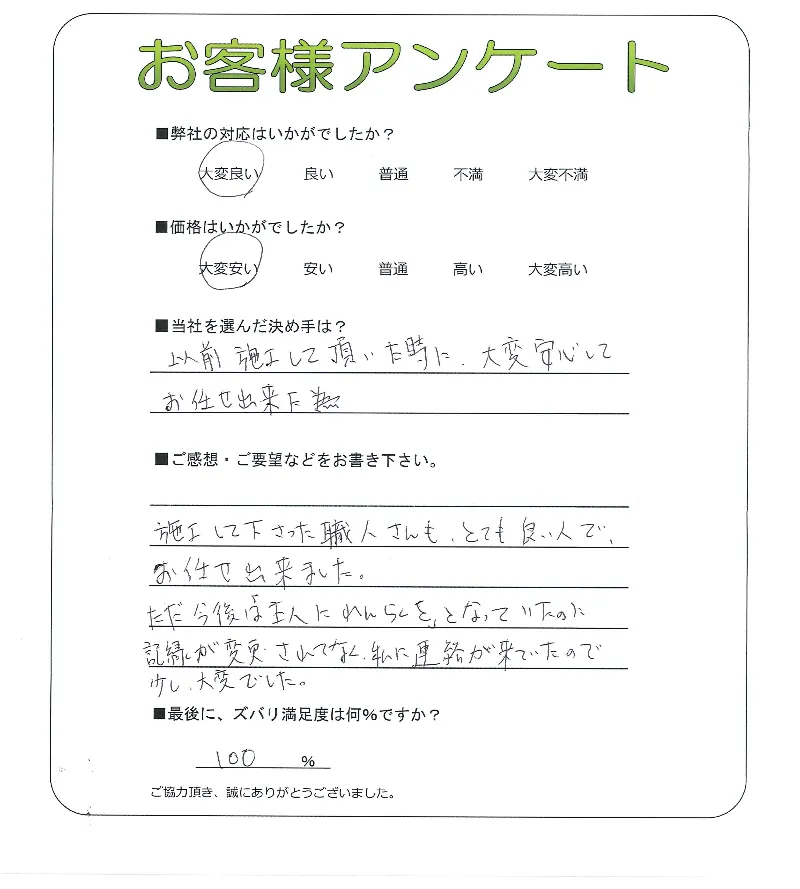 お客様アンケート
■弊社の対応はいかがでしたか?
大変良い 良い 普通 不満 大変不満
■価格はいかがでしたか?
大変安い 安い 普通 高い 大変高い
■当社を選んだ決め手は?
以前 施工して頂いた時に、大変安心して
お任せ出来た為
■ご感想・ご要望などをお書き下さい。
施工して下さった職人さんも、とても良い人で、
お任せ出来ました。
ただ今後は主人にれんらくを、となっていたのに
記録が変更されてなく、私に連絡が来ていたので
少し、大変でした。
■最後に、ズバリ満足度は何%ですか?
100 %
ご協力頂き、誠にありがとうございました。